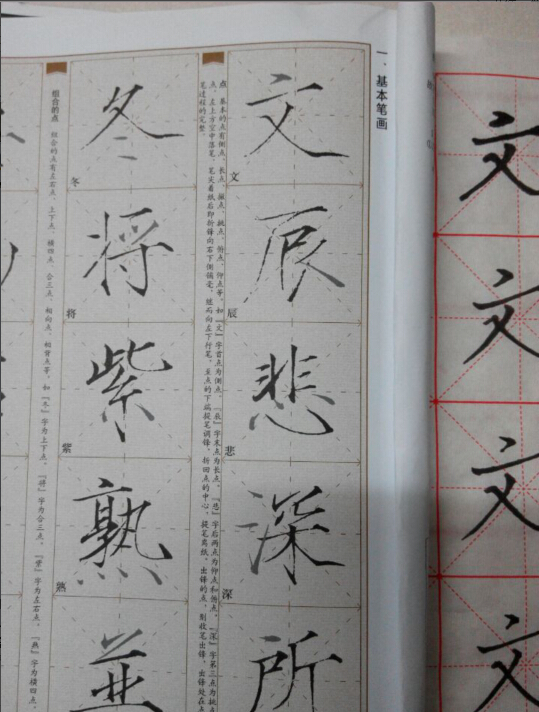 文
文
文
文
一、基本笔画
文
辰
悲
深
所
文
辰
悲
深
点 基本的点有侧点、长点、撇点、挑点、俯点、仰点等。如『文』字首点为侧点、『辰』字末点为长点、『悲』字后两点为仰点和俯点、『深』字第三点为挑点
点，左上方空中落笔，笔尖着纸后即折锋向右下侧铺毫，继而向左下行笔，至点的下端提笔调锋，折回点的中心，提笔离纸。出锋的点，则收笔出锋，出锋处在点
笔过程的完整。
冬
将
紫
熟
並
冬
将
紫
熟
组合的点 组合的点有左右点、上下点、横四点、合三点、相向点、相背点等，如『冬』字为上下点、『将』字为合三点、『紫』字为左右点、『熟』字为横四点、